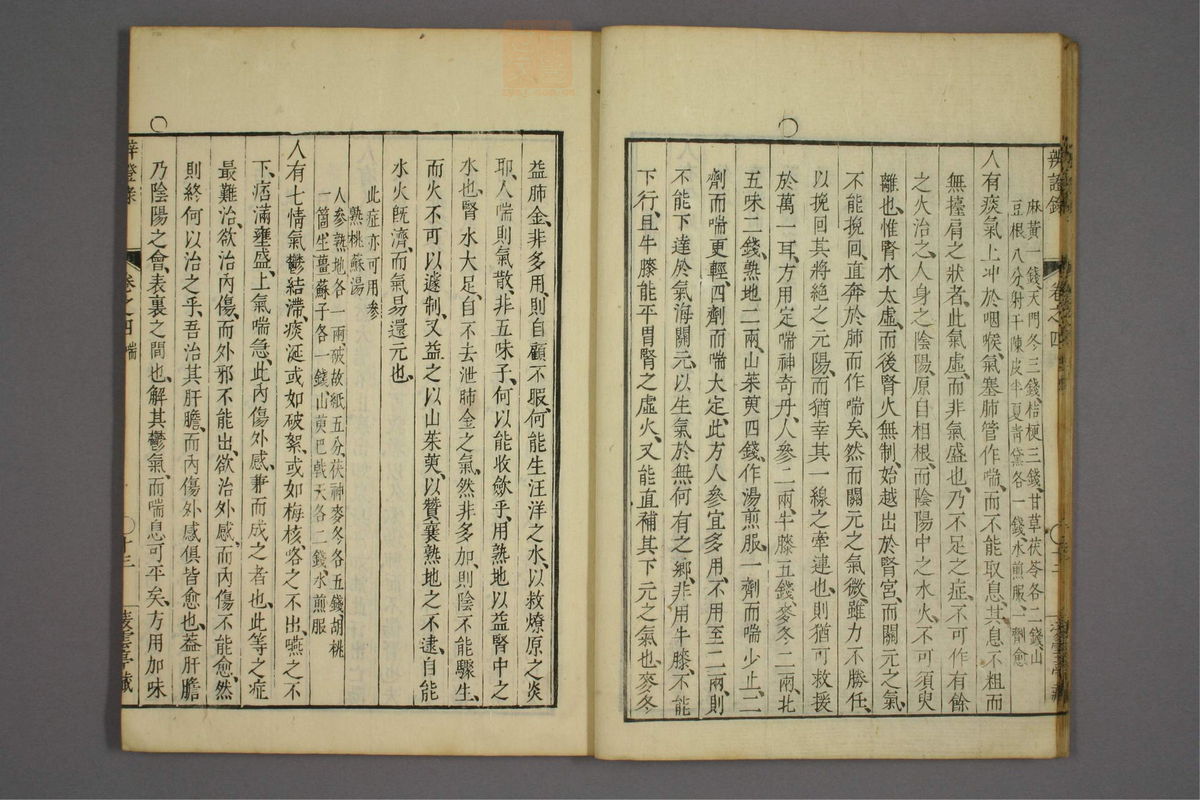 辨證錄
卷之四
麻黃一錢、天門冬三錢、桔梗三錢、甘草茯苓各二錢、山
豆根八分射干陳皮半夏青黛各一錢、水煎服、一劑愈
人有痰氣上冲於咽喉、氣塞肺管作喘、而不能取息、其息不粗而
無擡肩之狀者、此氣虛、而非氣盛也、乃不足之症、不可作有餘
之火治之、人身之陰陽、原自相根、而陰陽中之水火、不可須臾
離也、惟腎水太虛、而後腎火無制、始越出於腎宮、而關元之氣、
不能挽回、直奔於肺而作喘矣、然而關元之氣微、雖力不勝任、
以挽回其將絕之元陽、而猶幸其一線之牽連也、則猶可救援
於萬一耳、方用定喘神奇丹、人參二兩、牛膝五錢麥冬二兩、北
五味二錢、熟地二兩、山茱萸四錢、作湯煎服、一劑而喘少止、二
劑而喘更輕、四劑而喘大定、此方人參宜多用、不用至二兩、則
不能下達於氣海關元、以生氣於無何有之鄉、非用牛膝、不能
下行、且牛膝能平胃腎之虛火、又能直補其下元之氣也、麥冬
益肺金、非多用、則自顧不暇、何能生汪洋之水、以救燎原之炎
耶、人喘則氣散、非五味子、何以能收斂乎、用熟地以益腎中之
水也、腎水大足、自不去泄肺金之氣、然非多加、則陰不能驟生、
而火不可以遽制、又益之以山茱萸、以贊襄熟地之不逮、自能
水火旣濟、而氣易還元也、
此症亦可用參
熟桃蘇湯
人參熟地各一兩、破故紙五分、茯神麥冬各五錢、胡桃
一箇生薑蘇子各一錢山萸巴戟天各二錢、水煎服
人有七情氣鬱、結滯、痰涎或如破絮、或如梅核、咯之不出、嚥之不
下、痞滿壅盛、上氣喘急、此內傷外感、兼而成之者也、此等之症
最難治、欲治內傷、而外邪不能出、欲治外感、而內傷不能愈、然
則終何以治之乎、吾治其肝膽、而內傷外感俱皆愈也、葢肝膽
乃陰陽之會、表裏之間也、解其鬱氣、而喘息可平矣、方用加味
卷之四
喘
十三